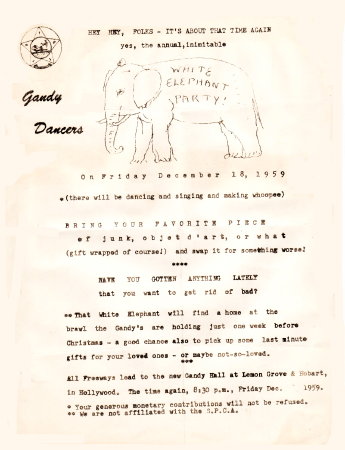 HEY HEY, FOLKS - IT'S ABOUT THAT TIME AGAIN
yes, the annual,inimitable
WHITE
ELEPHANT
PARTY!
Gandy
Dancers
On Friday December 18, 1959
*(there will be dancing and singing and making whoopee)
BRING YOUR FAVORITE PIECE
of junk, objet d'art, or what
(gift wrapped of course!) and swap it for something worse!
****
HAVE YOU GOTTEN ANYTHING LATELY
that you want to get rid of bad?
**That White Elephant will find a home at the
brawl the Gandy's are holding just one week before
Christmas - a good chance also to pick up some last minute
gifts for your loved ones - or maybe not-so-loved.
***
All Freeways lead to the new Gandy Hall at Lemon Grove & Hobart,
in Hollywood. The time again, 8:30 p.m., Friday Dec. 1959.
* Your generous monetary contributions will not be refused.
** We are not affiliated with the S.P.C.A.